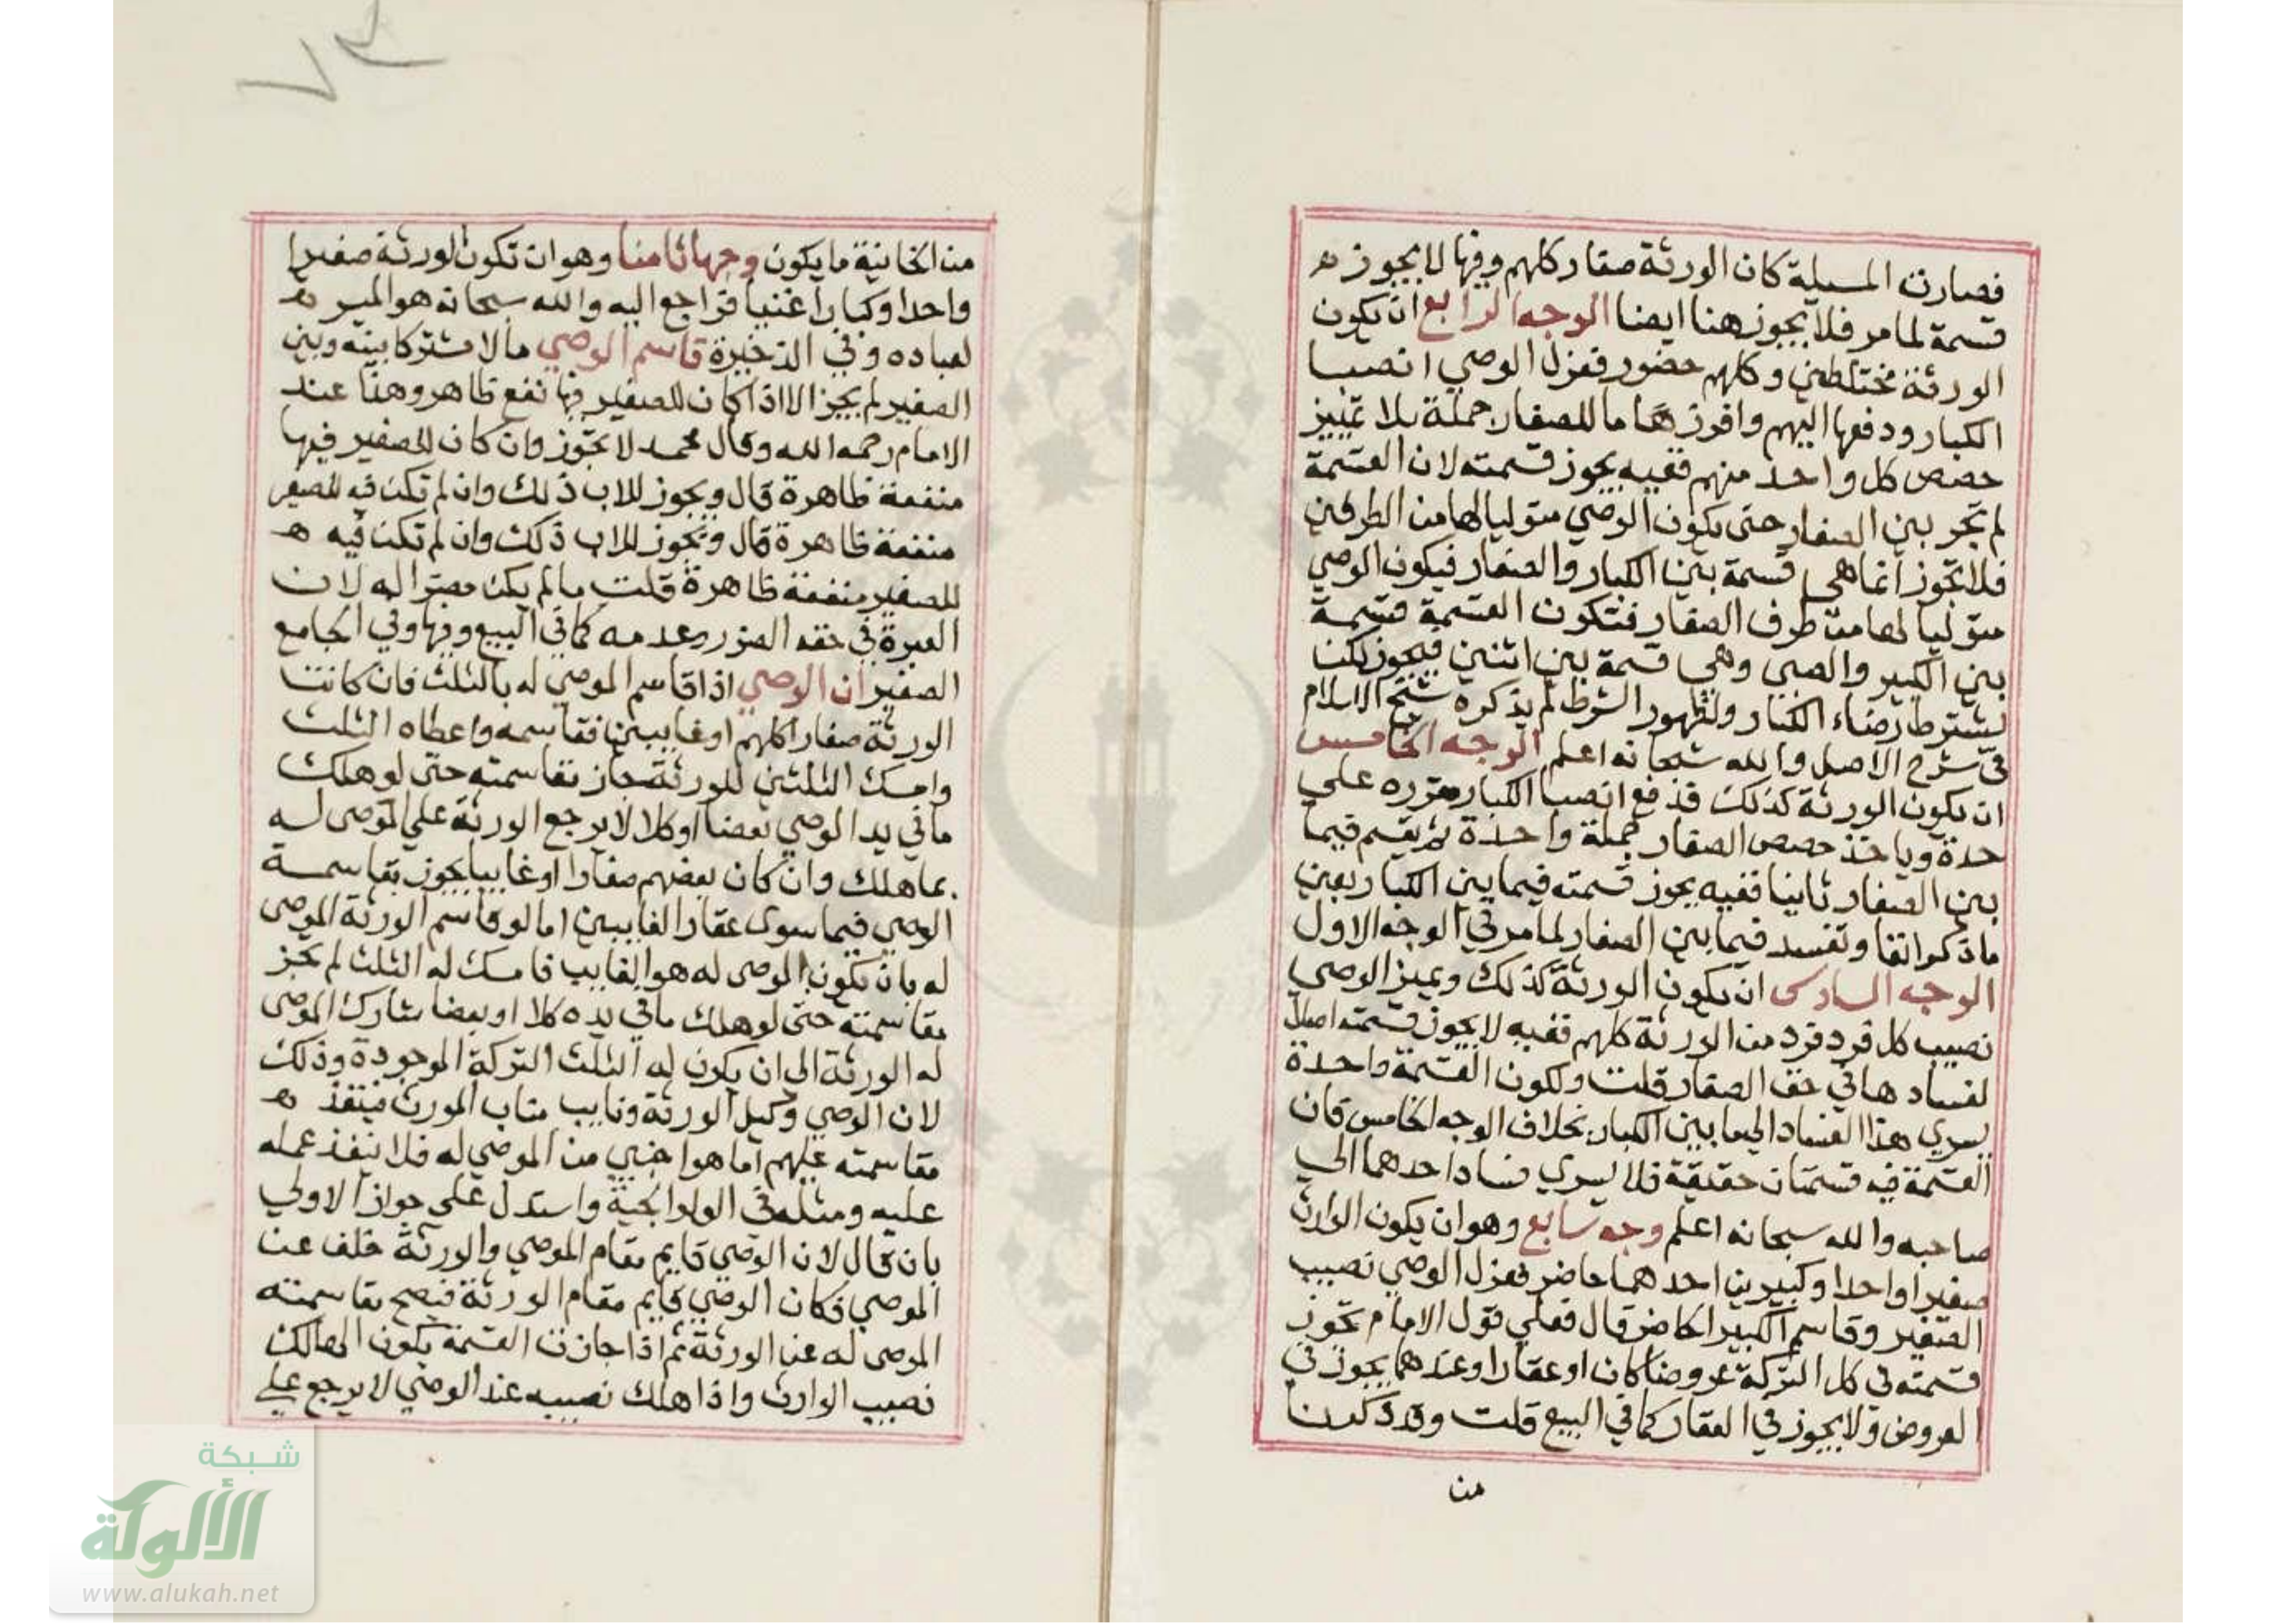 فصارت المسيلة كان الورثة صغار كلهم وفيها لا يجوز ه
قسمة لما مر فلا يجوز هنا ايضا الوجه الرابع ان يكون
الورثة مختلطين وكلهم حضور فعزل الوصي انصبا
الكبار ودفعها اليهم وافرز ها ما للصغار جملة بلا تمييز
حصص كل واحد منهم ففيه يجوز قسمته لان القسمة
لم تجر بين الصغار حتى يكون الوصي متوليا لها من الطرفين
فلا تجوز انما هي قسمة بين الكبار والصغار فيكون الوصي
متوليا لها من طرف الصغار فتكون القسمة قسمة
بين الكبير والصبي وهي قسمة بين اثنين فيجوز لكن
بشترط رضاء الكبار ولظهور الشرط لم يذكره شيخ الاسلام
في شرح الاصل والله سبحانه اعلم الوجه الخامس
ان يكون الورثة كذلك فدفع انصبا الكبار مقرره على
حدة وياخذ حصص الصغار جملة واحدة ثم يقسم فيما
بين الصغار ثانيا ففيه يجوز قسمته فيما بين الكبار بعين
ما ذكر انفا وتفسد فيما بين الصغار لما مر في الوجه الاول
الوجه السادس ان يكون الورثة كذلك ويميز الوصي
نصيب كل فرد فرد من الورثة كلهم ففيه لا يجوز قسمته اصلا
لفسادها في حق الصغار قلت ولكون القسمة واحدة
يسري هذا الفساد الى ما بين الكبار بخلاف الوجه الخامس فان
القسمة فيه قسمتان حقيقة فلا يسري فساد احدهما الى
صاحبه والله سبحانه اعلم وجه سابع وهو ان يكون الوارث
صغيرا واحدا وكبيرين احدهما حاضر فعزل الوصي نصيب
الصغير وقاسم الكبير الحاضر قال فعلى قول الامام تجوز
قسمته في كل التركة عروضا كان او عقارا وعندهما يجوز في
العروض ولا يجوز في العقار كما في البيع قلت وقد ذكرنا
من
من الخانية ما يكون وجها ثامنا وهو ان تكون الورثة صغيرا
واحدا وكبارا غنيا فراجع اليه والله سبحانه هو الميسر ه
لعباده وفي الذخيرة قاسم الوصي مالا مشتركا بينه وبين
الصغير لم يجز الا اذا كان للصغير فيها نفع ظاهر وهذا عند
الامام رحمه الله وقال محمد لا تجوز وان كان للصغير فيها
منفعة ظاهرة قال ويجوز للاب ذلك وان لم تكن فيه للصغير
منفعة ظاهرة قال وتجوز للاب ذلك وان لم تكن فيه ه
للصغير منفعة ظاهرة قلت ما لم يكن مضرا له لان
العبرة في حقه الضرر وعدمه كما في البيع وفيها وفي الجامع
الصغير ان الوصي اذا قاسم الموصي له بالثلث فان كانت
الورثة صغارا كلهم او غايبين فقاسمه واعطاه الثلث
وامسك الثلثين للورثة جاز مقاسمته حتى لو هلك
ما في يد الوصي بعضا او كلا لا يرجع الورثة على الموصى له
بما هلك وان كان بعضهم صغارا او غايبا يجوز مقاسمة
الوصي فيما سوى عقار الغايبين اما لو قاسم الورثة الموصى
له بان تكون الموصى له هو الغايب فامسك له الثلث لم تجز
مقاسمته حتى لو هلك ما في يده كلا او بعضا شارك الموصى
له الورثة الى ان يكون له الثلث التركة الموجودة وذلك
لان الوصي وكيل الورثة ونايب مناب المورث فينفذ ه
مقاسمته عليهم اما هو اجنبي من الموصي له فلا ينفذ عمله
عليه ومثله في الولوالجية واستدل على جواز الاولى
بان قال لان الوصي قايم مقام الموصي والورثة خلف عن
الموصي فكان الوصي قايم مقام الورثة فيصح مقاسمته
الموصى له عن الورثة ثم اذا جازت القسمة يكون الهالك
نصيب الوارث واذا هلك نصيبه عند الوصي لا يرجع على
شبكة
الألوكة
www.alukah.net